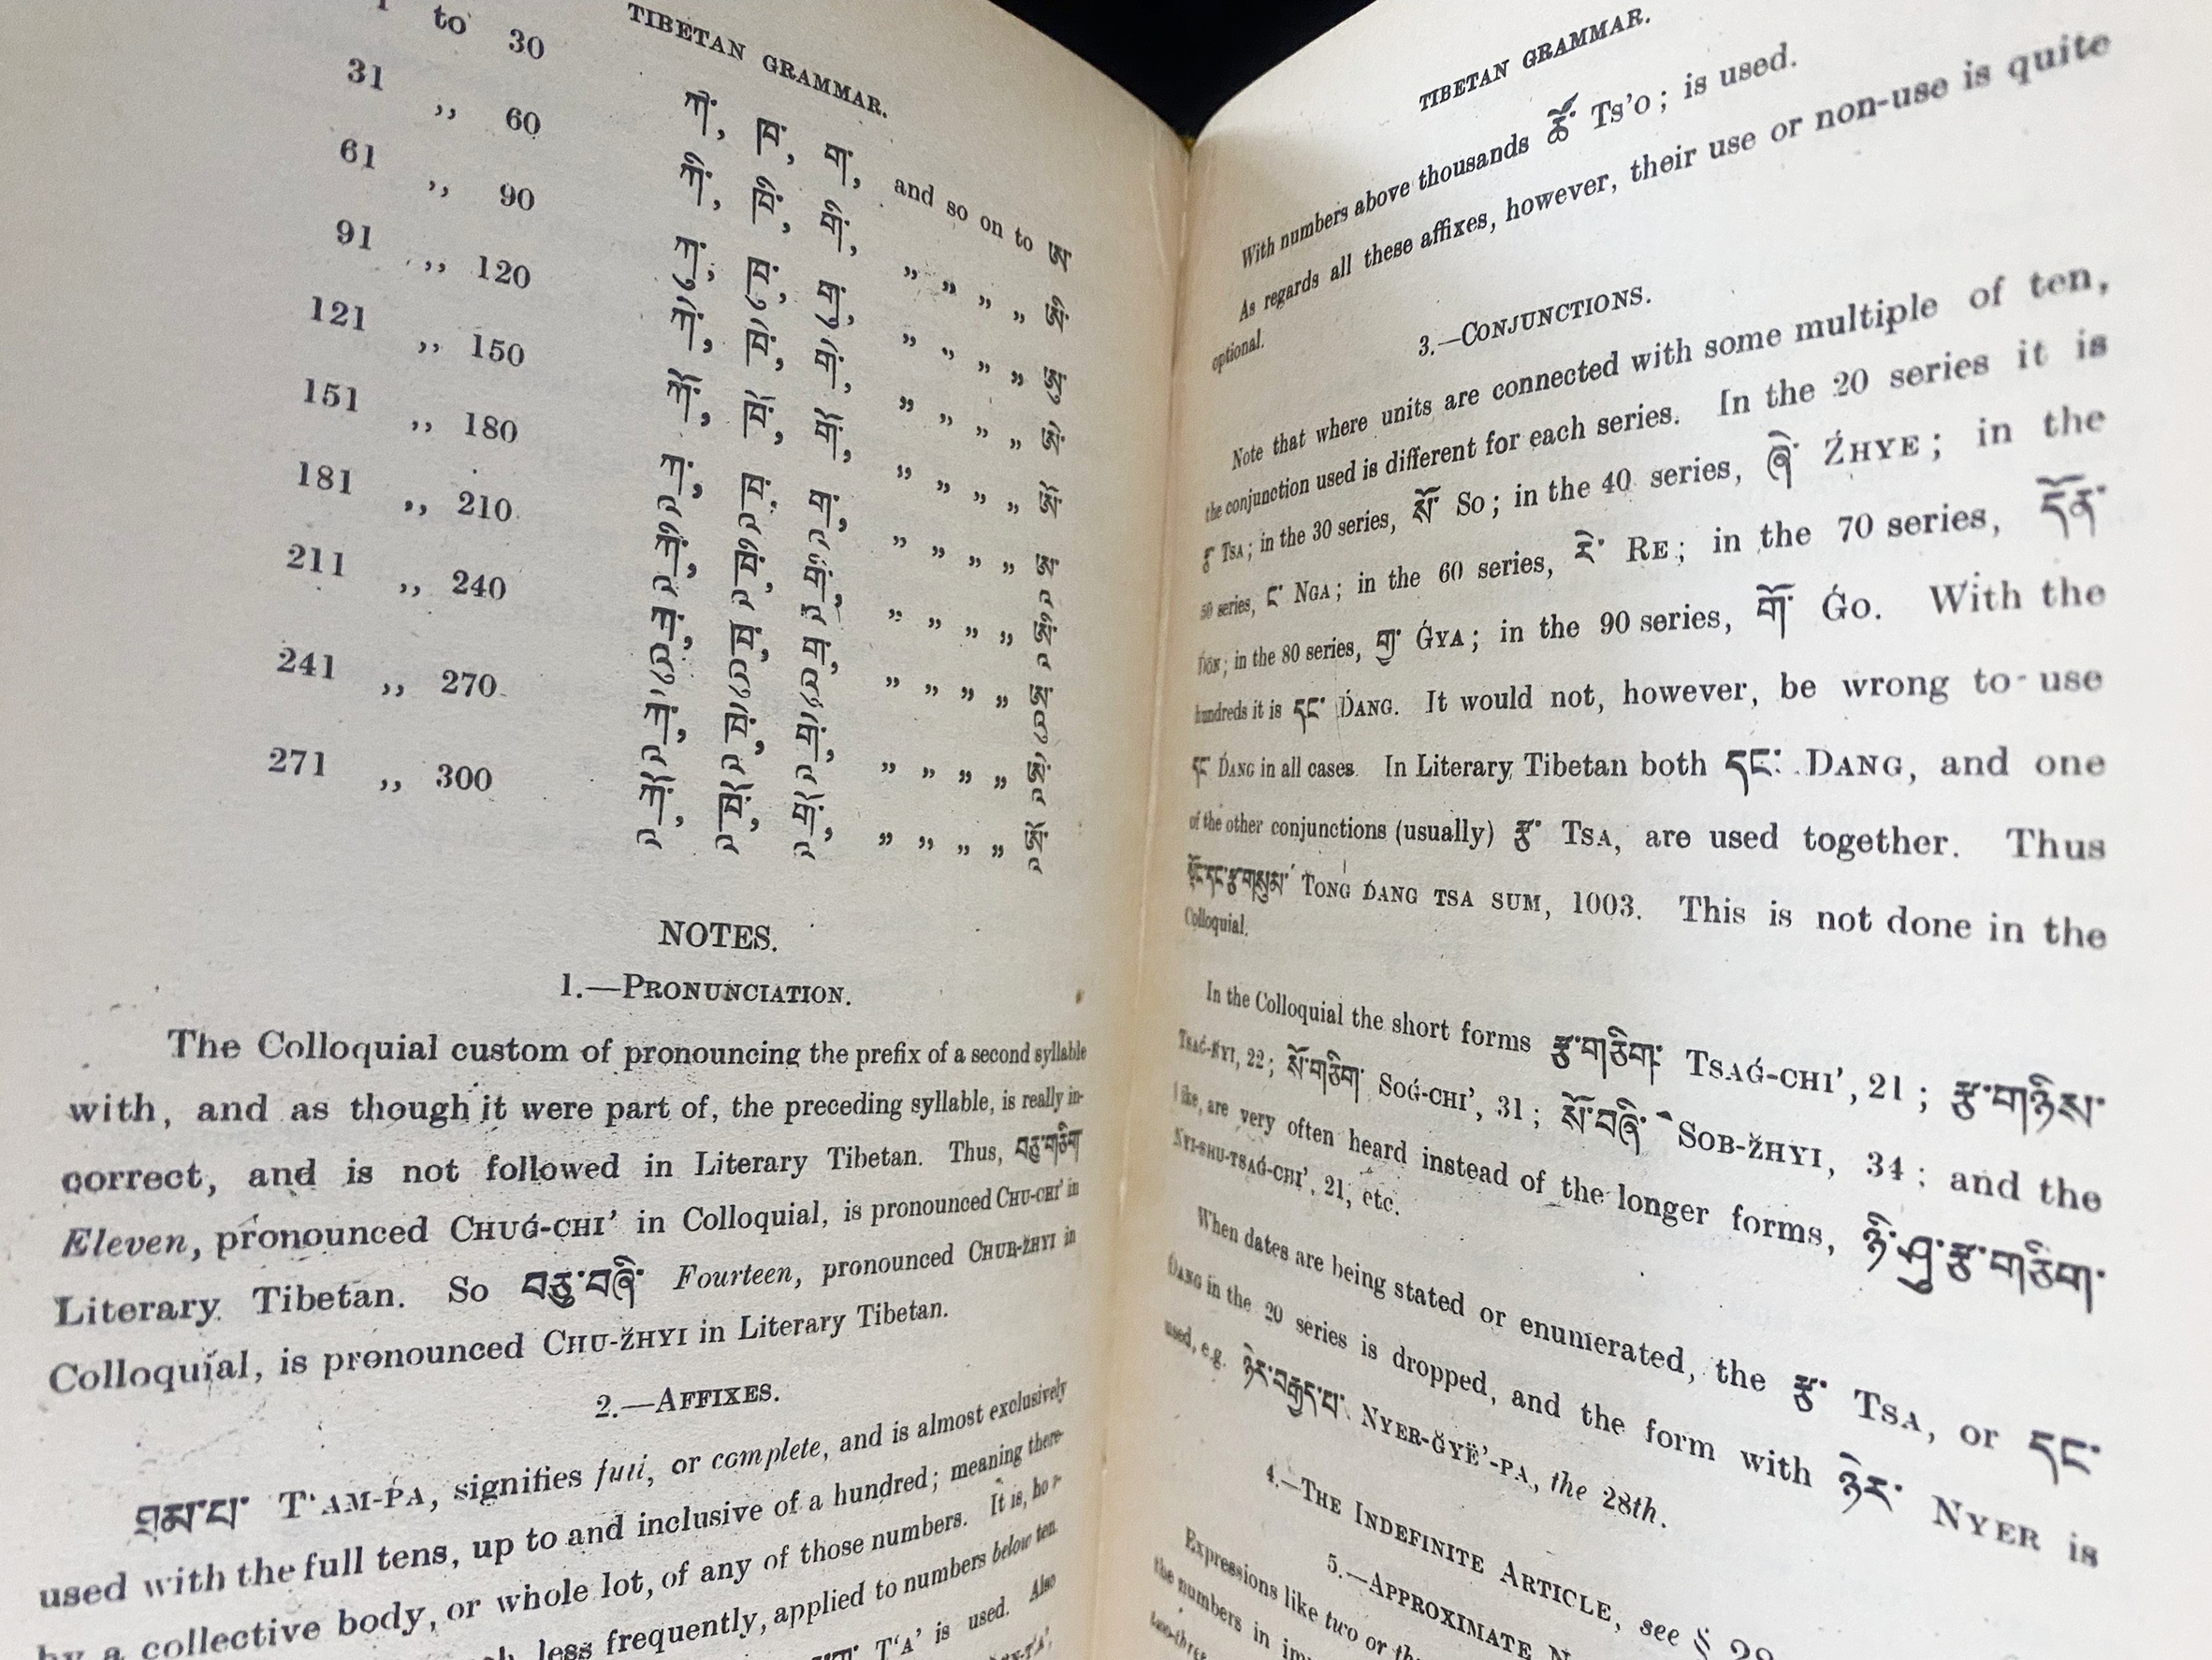 TIBETAN GRAMMAR.
to 30 ཀ་, ཁ་, ག་, and so on to ཨ
31 ,, 60 ཀི་, ཁི་, གི་, ,, ,, ,, ,, ཨི་
61 ,, 90 ཀུ་, ཁུ་, གུ་, ,, ,, ,, ,, ཨུ་
91 ,, 120 ཀེ་, ཁེ་, གེ་, ,, ,, ,, ,, ཨེ་
121 ,, 150 ཀོ་, ཁོ་, གོ་, ,, ,, ,, ,, ཨོ་
151 ,, 180
181 ,, 210
211 ,, 240
241 ,, 270
271 ,, 300
NOTES.
1.—PRONUNCIATION.
The Colloquial custom of pronouncing the prefix of a second syllable
with, and as though it were part of, the preceding syllable, is really in-
correct, and is not followed in Literary Tibetan. Thus, བཅུ་གཅིག
Eleven, pronounced CHUǴ-CHI’ in Colloquial, is pronounced CHU-CHI’ in
Literary Tibetan. So བཅུ་བཞི་ Fourteen, pronounced CHUB-ŽHYI in
Colloquial, is pronounced CHU-ŽHYI in Literary Tibetan.
2.—AFFIXES.
ཐམ་པ་ T‘AM-ṔA, signifies full, or complete, and is almost exclusively
used with the full tens, up to and inclusive of a hundred; meaning there-
by a collective body, or whole lot, of any of those numbers. It is, how-
less frequently, applied to numbers below ten.
T‘A’ is used. Also
TIBETAN GRAMMAR.
With numbers above thousands ཚོ་ Ts’o; is used.
As regards all these affixes, however, their use or non-use is quite
optional.
3.—CONJUNCTIONS.
Note that where units are connected with some multiple of ten,
the conjunction used is different for each series. In the 20 series it is
རྩ་ TSA; in the 30 series, སོ་ So; in the 40 series, ཞེ་ ŹHYE; in the
50 series, ང་ NGA; in the 60 series, རེ་ RE; in the 70 series, དོན་
ḊÖN; in the 80 series, གྱ་ ǴYA; in the 90 series, གོ་ ǴO. With the
hundreds it is དང་ ḊANG. It would not, however, be wrong to use
དང་ ḊANG in all cases. In Literary Tibetan both དང་ DANG, and one
of the other conjunctions (usually) རྩ་ TSA, are used together. Thus
སྟོང་དང་རྩ་གསུམ་ TONG ḊANG TSA SUM, 1003. This is not done in the
Colloquial.
In the Colloquial the short forms རྩ་གཅིག་ TSAǴ-CHI’, 21; རྩ་གཉིས་
TSAǴ-NYI, 22; སོ་གཅིག་ SOǴ-CHI’, 31; སོ་བཞི་ SOB-ŽHYI, 34; and the
like, are very often heard instead of the longer forms, ཉི་ཤུ་རྩ་གཅིག་
NYI-SHU-TSAǴ-CHI’, 21, etc.
When dates are being stated or enumerated, the རྩ་ TSA, or དང་
ḊANG in the 20 series is dropped, and the form with ཉེར་ NYER is
used, e.g. ཉེར་བརྒྱད་པ་ NYER-ǦYË’-PA, the 28th.
4.—THE INDEFINITE ARTICLE, see §
5.—APPROXIMATE
Expressions like two or
the numbers in
two-three